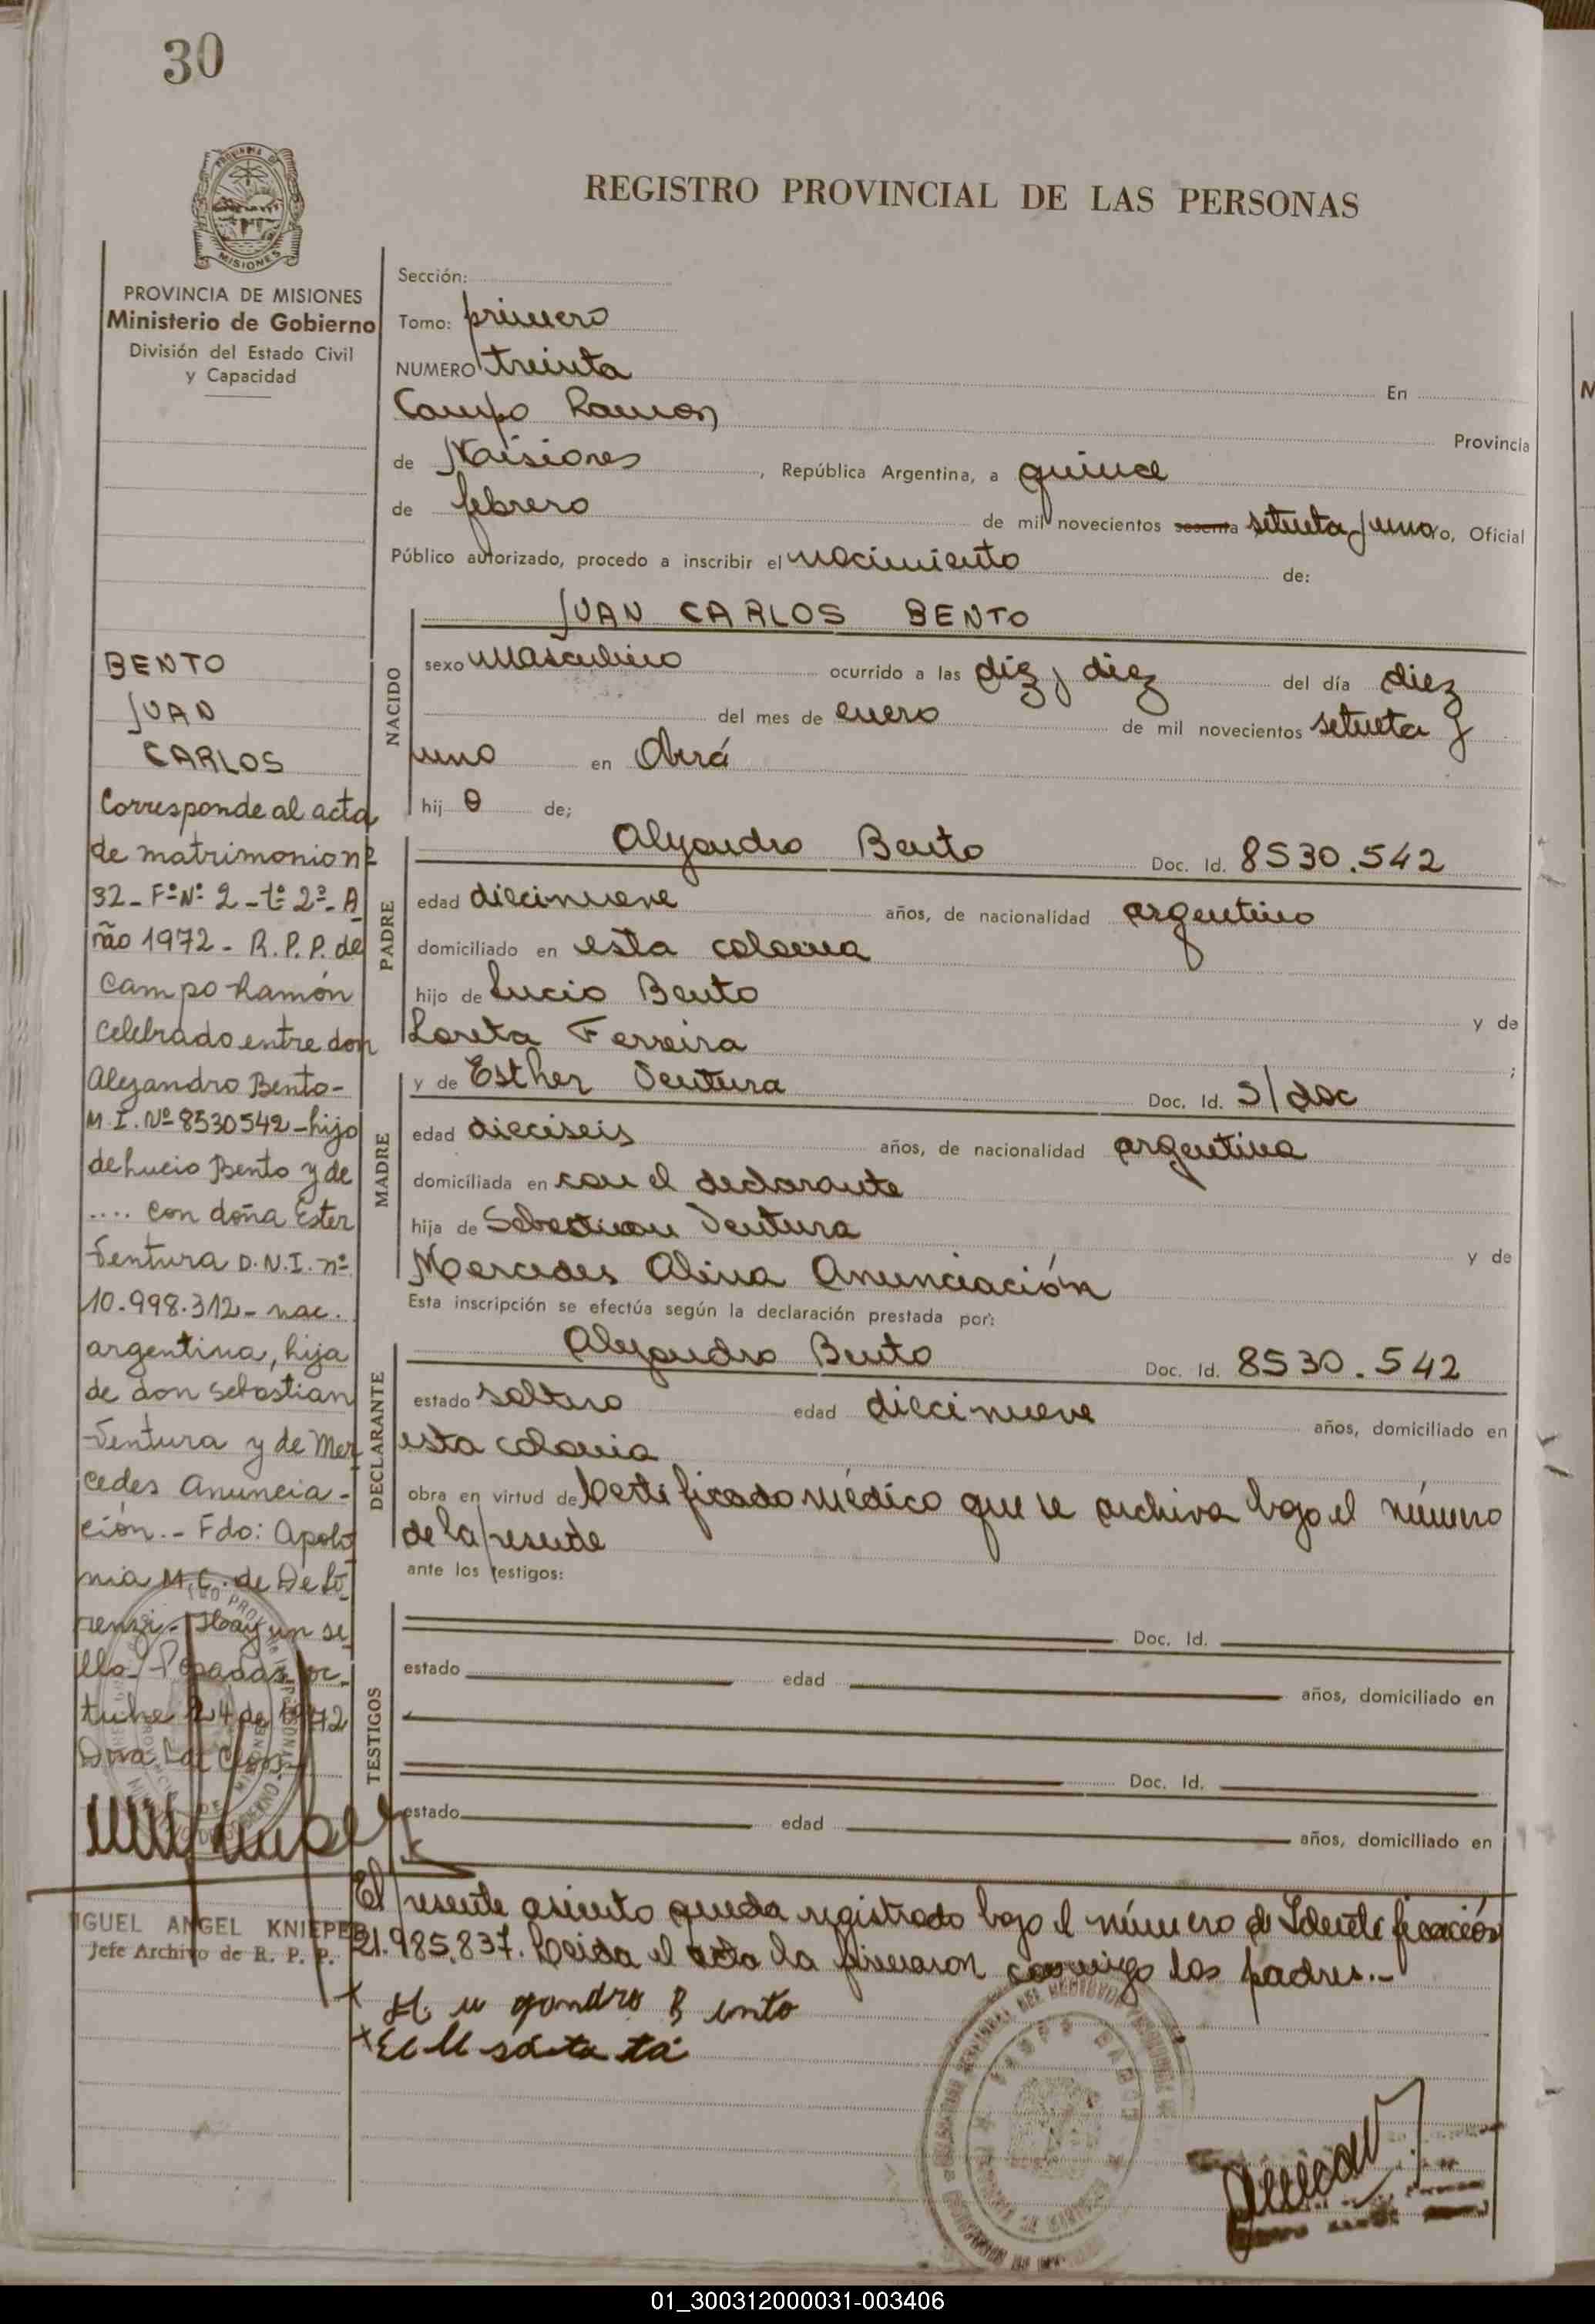 30
REGISTRO PROVINCIAL DE LAS PERSONAS
MISIONES
PROVINCIA DE MISIONES
Ministerio de Gobierno
División del Estado Civil
y Capacidad
Sección:
Tomo: primero
NUMERO treinta En
Campo Ramon Provincia
de Misiones, República Argentina, a quince
de febrero de mil novecientos sesenta setenta y uno yo, Oficial
Público autorizado, procedo a inscribir el nacimiento de:
NACIDO
JUAN CARLOS BENTO
sexo masculino ocurrido a las diez y diez del día diez
del mes de enero de mil novecientos setenta y
uno en Oberá
hij o de;
PADRE
Alejandro Bento Doc. Id. 8530.542
edad diecinueve años, de nacionalidad argentino
domiciliado en esta colonia
hijo de Lucio Bento y de
Loreta Ferreira ;
MADRE
y de Esther Ventura Doc. Id. S/doc
edad dieciseis años, de nacionalidad argentina
domiciliada en con el declarante
hija de Sebastian Ventura y de
Mercedes Alina Anunciación
Esta inscripción se efectúa según la declaración prestada por:
DECLARANTE
Alejandro Bento Doc. Id. 8530.542
estado soltero edad diecinueve años, domiciliado en
esta colonia
obra en virtud de Certificado médico que se archiva bajo el número
de la presente
ante los testigos:
TESTIGOS
Doc. Id.
estado edad años, domiciliado en
Doc. Id.
estado edad años, domiciliado en
El presente asiento queda registrado bajo el número de Identificación
21.985.837. Leida el acta la firmaron conmigo los padres.-
BENTO
JUAN
CARLOS
Corresponde al acta
de matrimonio nº
32- Fº Nº 2 - tº 2º- A
ño 1972 - R.P.P. de
Campo Ramón
celebrado entre don
Alejandro Bento-
M.I. Nº 8530542-hijo
de Lucio Bento y de
.... con doña Ester
Ventura D.N.I. nº
10.998.312- nac.
argentina, hija
de don Sebastian
Ventura y de Mer
cedes Anuncia-
ción.- Fdo: Apolo
nia M.C. de De Lo
renzi.- Hay un se
llo. Posadas, oc
tubre 24 de 1972
MIGUEL ANGEL KNIEPER
Jefe Archivo de R. P. P.
01_300312000031-003406